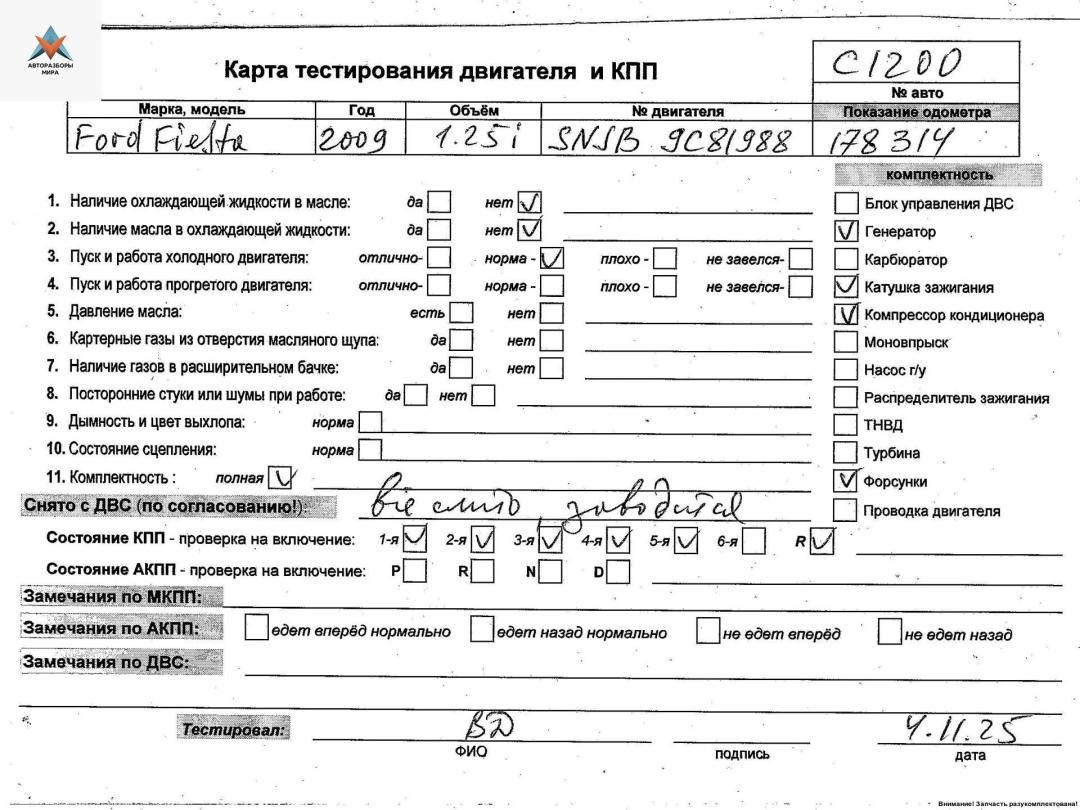 АВТОРАЗБОРЫ
МИРА
Карта тестирования двигателя и КПП
C1200
№ авто
Марка, модель Год Объём № двигателя Показание одометра
Ford Fiesta 2009 1.25i SNJB 9C81988 178314
комплектность
1. Наличие охлаждающей жидкости в масле: да нет
Блок управления ДВС
2. Наличие масла в охлаждающей жидкости: да нет
Генератор
3. Пуск и работа холодного двигателя: отлично- норма - плохо - не завелся-
Карбюратор
4. Пуск и работа прогретого двигателя: отлично- норма - плохо - не завелся-
Катушка зажигания
5. Давление масла: есть нет
Компрессор кондиционера
6. Картерные газы из отверстия масляного щупа: да нет
Моновпрыск
7. Наличие газов в расширительном бачке: да нет
Насос г/у
8. Посторонние стуки или шумы при работе: да нет
Распределитель зажигания
9. Дымность и цвет выхлопа: норма
ТНВД
10. Состояние сцепления: норма
Турбина
11. Комплектность : полная
Форсунки
Снято с ДВС (по согласованию!): все снято, заводится
Проводка двигателя
Состояние КПП - проверка на включение: 1-я 2-я 3-я 4-я 5-я 6-я R
Состояние АКПП - проверка на включение: P R N D
Замечания по МКПП:
Замечания по АКПП: едет вперёд нормально едет назад нормально не едет вперёд не едет назад
Замечания по ДВС:
Тестировал: ВД 4.11.25
ФИО подпись дата
Внимание! Запчасть разукомплектована!